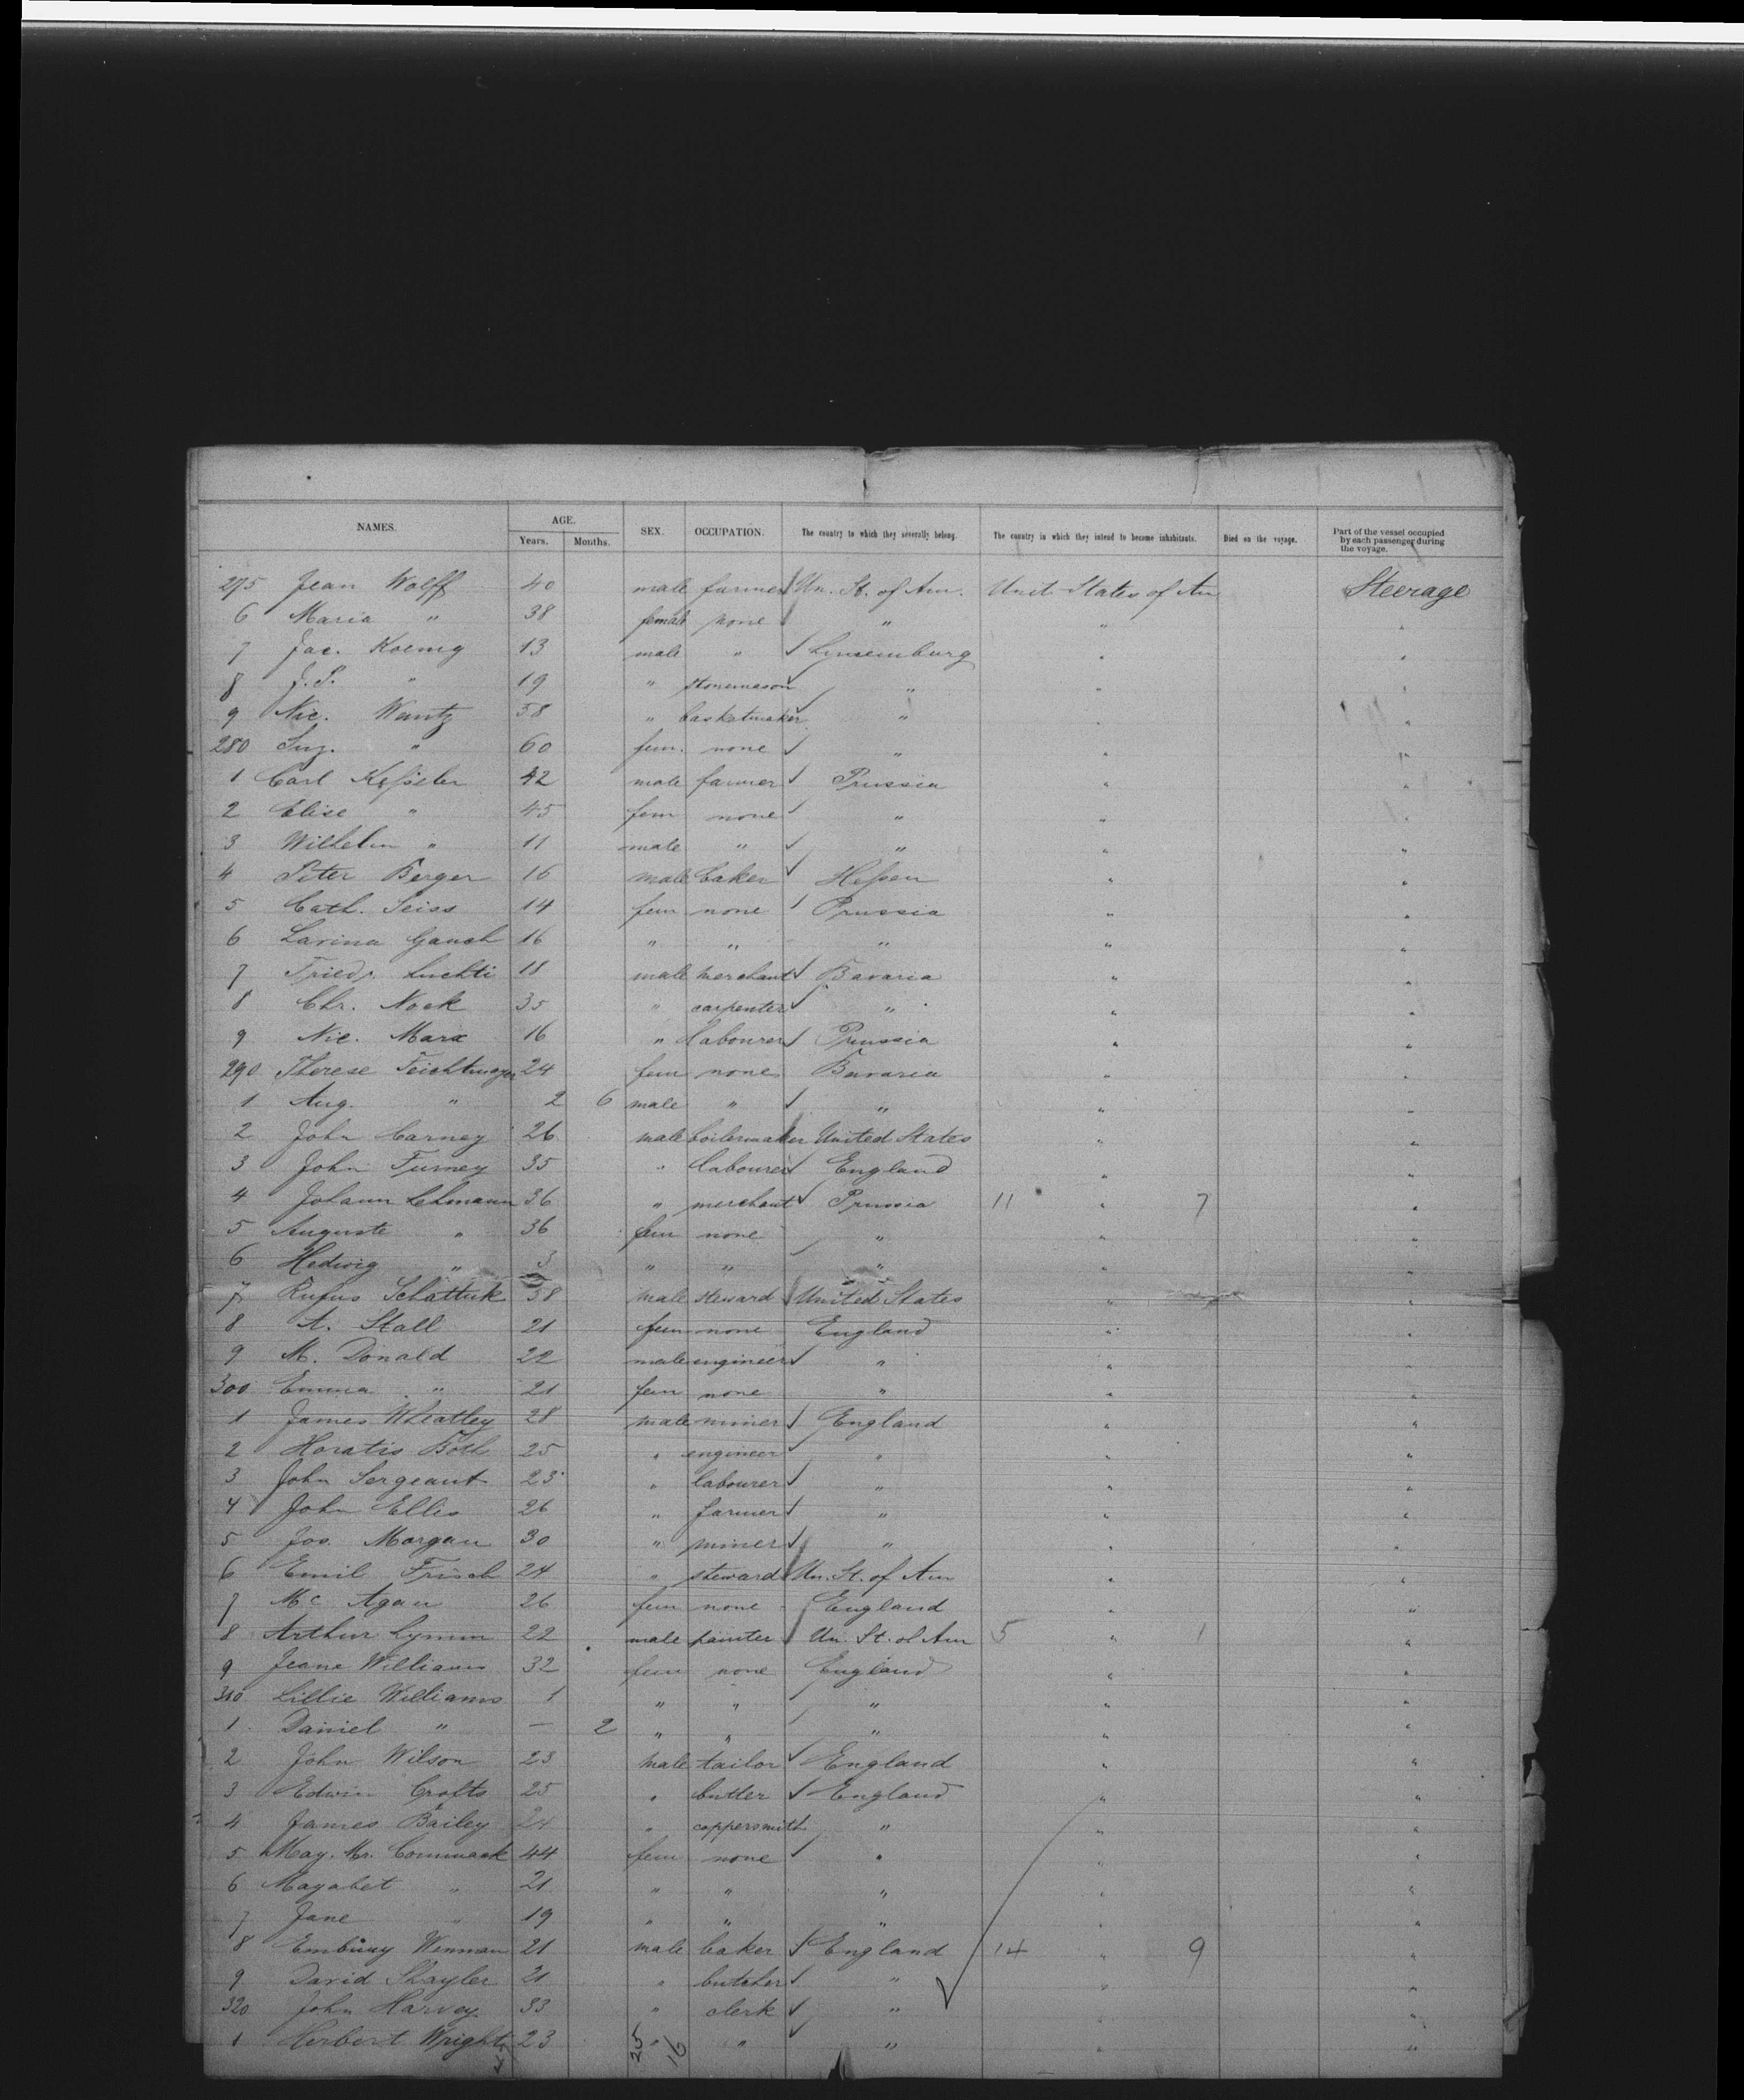 NAMES. AGE. SEX. OCCUPATION. The country to which they severally belong. The country in which they intend to become inhabitants. Died on the voyage. Part of the vessel occupied by each passenger during the voyage.
Years. Months.
275 Jean Wolff 40 male farmer Un. St. of Am. Unit States of Am Steerage
6 Maria " 38 female none " " "
7 Jac. Koenig 13 male " Luxemburg " "
8 J. P. " 19 " stonemason " " "
9 Nic. Wantz 58 " basketmaker " " "
280 Suz. " 60 fem. none " " "
1 Carl Kessler 42 male farmer Prussia " "
2 Elise " 45 fem none " " "
3 Wilhelm " 11 male " " " "
4 Peter Berger 16 male baker Hessen " "
5 Cath. Seiss 14 fem none Prussia " "
6 Lavina Gauch 16 " " " " "
7 Friedr. Luchti 18 male merchant Bavaria " "
8 Chr. Nock 35 " carpenter " " "
9 Nic. Marx 16 " labourer Prussia " "
290 Therese Feichtmeyer 24 fem none Bavaria " "
1 Aug. " 2 6 male " " " "
2 John Carney 26 male boilermaker United States " "
3 John Furney 35 " labourer England " "
4 Johann Lehmann 36 " merchant Prussia 11 " 7 "
5 Auguste " 36 fem none " " "
6 Hedwig " 3 " " " " "
7 Rufus Schattuk 38 male steward United States " "
8 A. Stall 21 fem none England " "
9 M. Donald 22 male engineer " " "
300 Emma " 21 fem none " " "
1 James Wheatley 28 male miner England " "
2 Horatis Both 25 " engineer " " "
3 John Sergeant 23 " labourer " " "
4 John Ellis 26 " farmer " " "
5 Jos. Morgan 30 " miner " " "
6 Emil Frisch 24 " steward Un. St. of Am " "
7 Mc Agan 26 fem none England " "
8 Arthur Lymm 22 male painter Un. St. of Am 5 " 1 "
9 Jeane Williams 32 fem none England " "
310 Lillie Williams 1 " " " " "
1 Daniel " — 2 " " " " "
2 John Wilson 23 male tailor England " "
3 Edwin Crofts 25 " butler England " "
4 James Bailey 24 " coppersmith " " "
5 May. Mc. Commack 44 fem none " " "
6 Magabet " 21 " " " " "
7 Jane " 19 " " " " "
8 Embury Wenman 21 male baker England 14 " 9 "
9 David Shayler 21 " butcher " " "
320 John Harvey 33 " clerk " " "
1 Herbert Wright 23 " " " " "
25 16